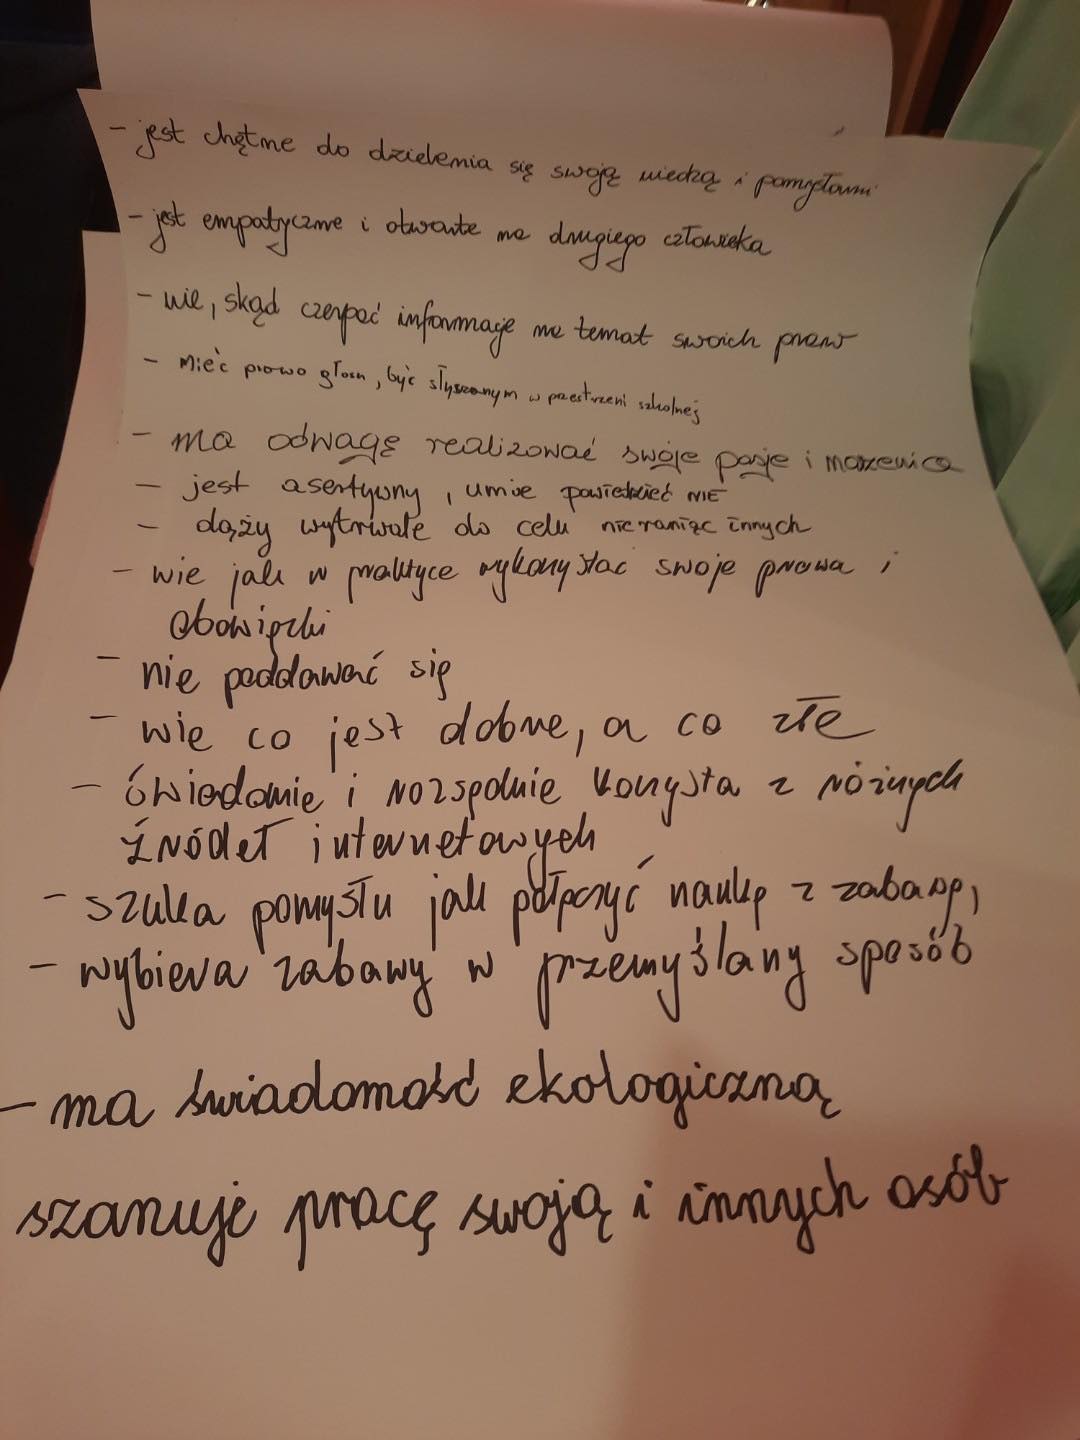 - jest chętne do dzielenia się swoją wiedzą i pomysłami
- jest empatyczne i otwarte na drugiego człowieka
- wie, skąd czerpać informacje na temat swoich praw
- mieć prawo głosu, być słyszanym w przestrzeni szkolnej
- ma odwagę realizować swoje pasje i marzenia
- jest asertywny, umie powiedzieć NIE
- dąży wytrwale do celu nie raniąc innych
- wie jak w praktyce wykorzystać swoje prawa i
obowiązki
- nie poddawać się
- wie co jest dobre, a co złe
- świadomie i rozsądnie korzysta z różnych
źródeł internetowych
- szuka pomysłu jak połączyć naukę z zabawą,
- wybiera zabawy w przemyślany sposób
- ma świadomość ekologiczną
szanuje pracę swoją i innych osób